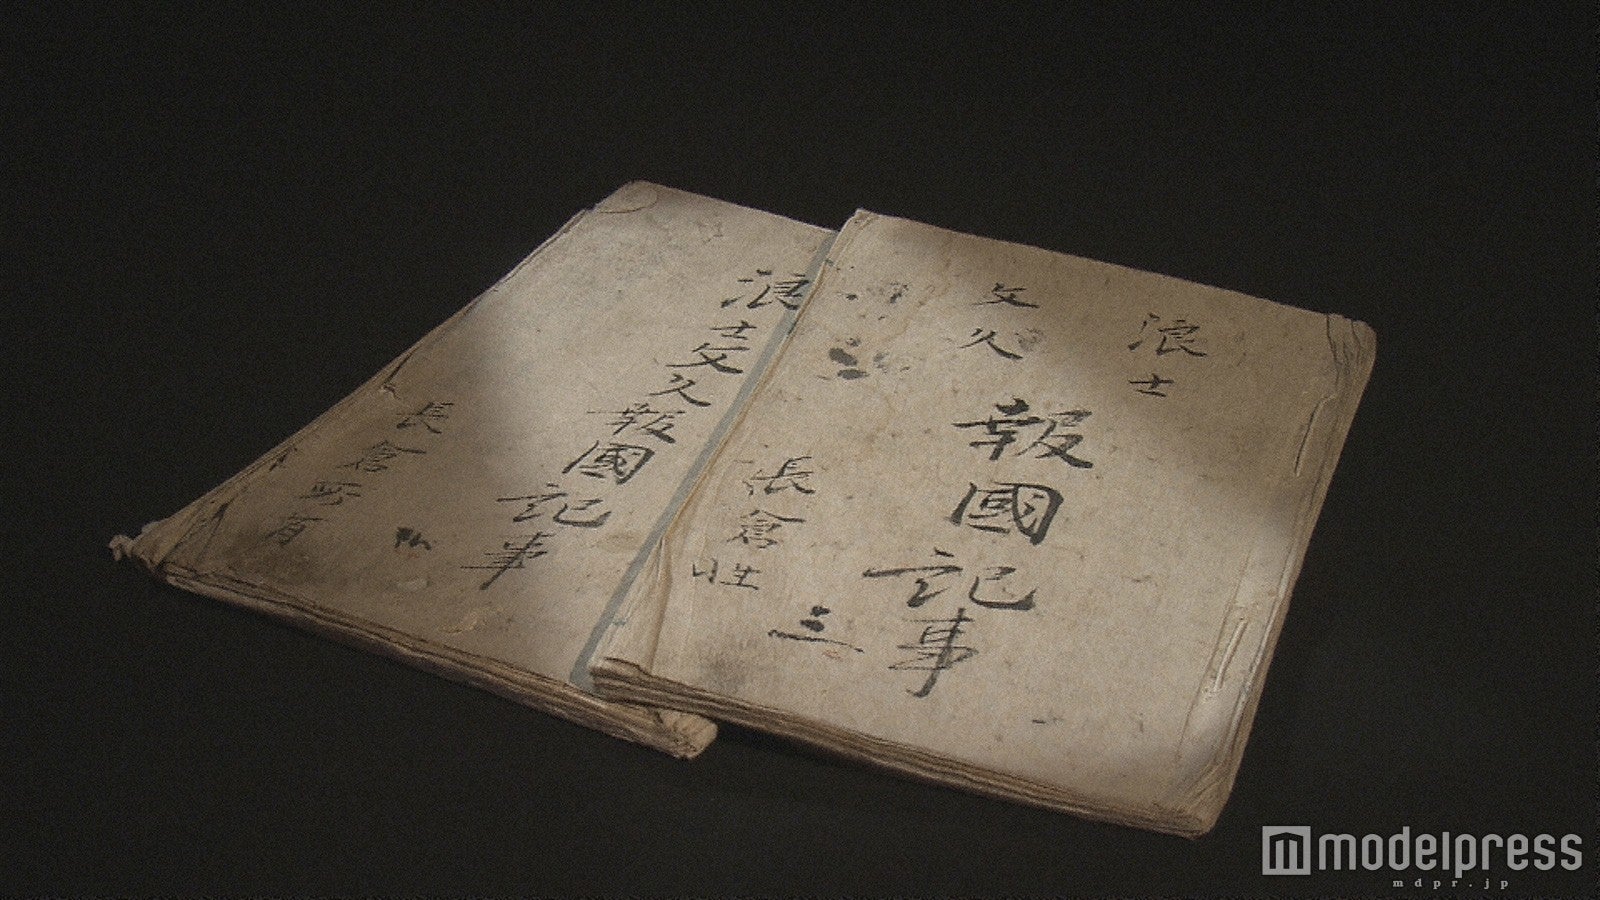 浪士
文久
報國記事
三
長倉性
浪士文久報國記事
長倉所有
modelpress
mdpr.jp